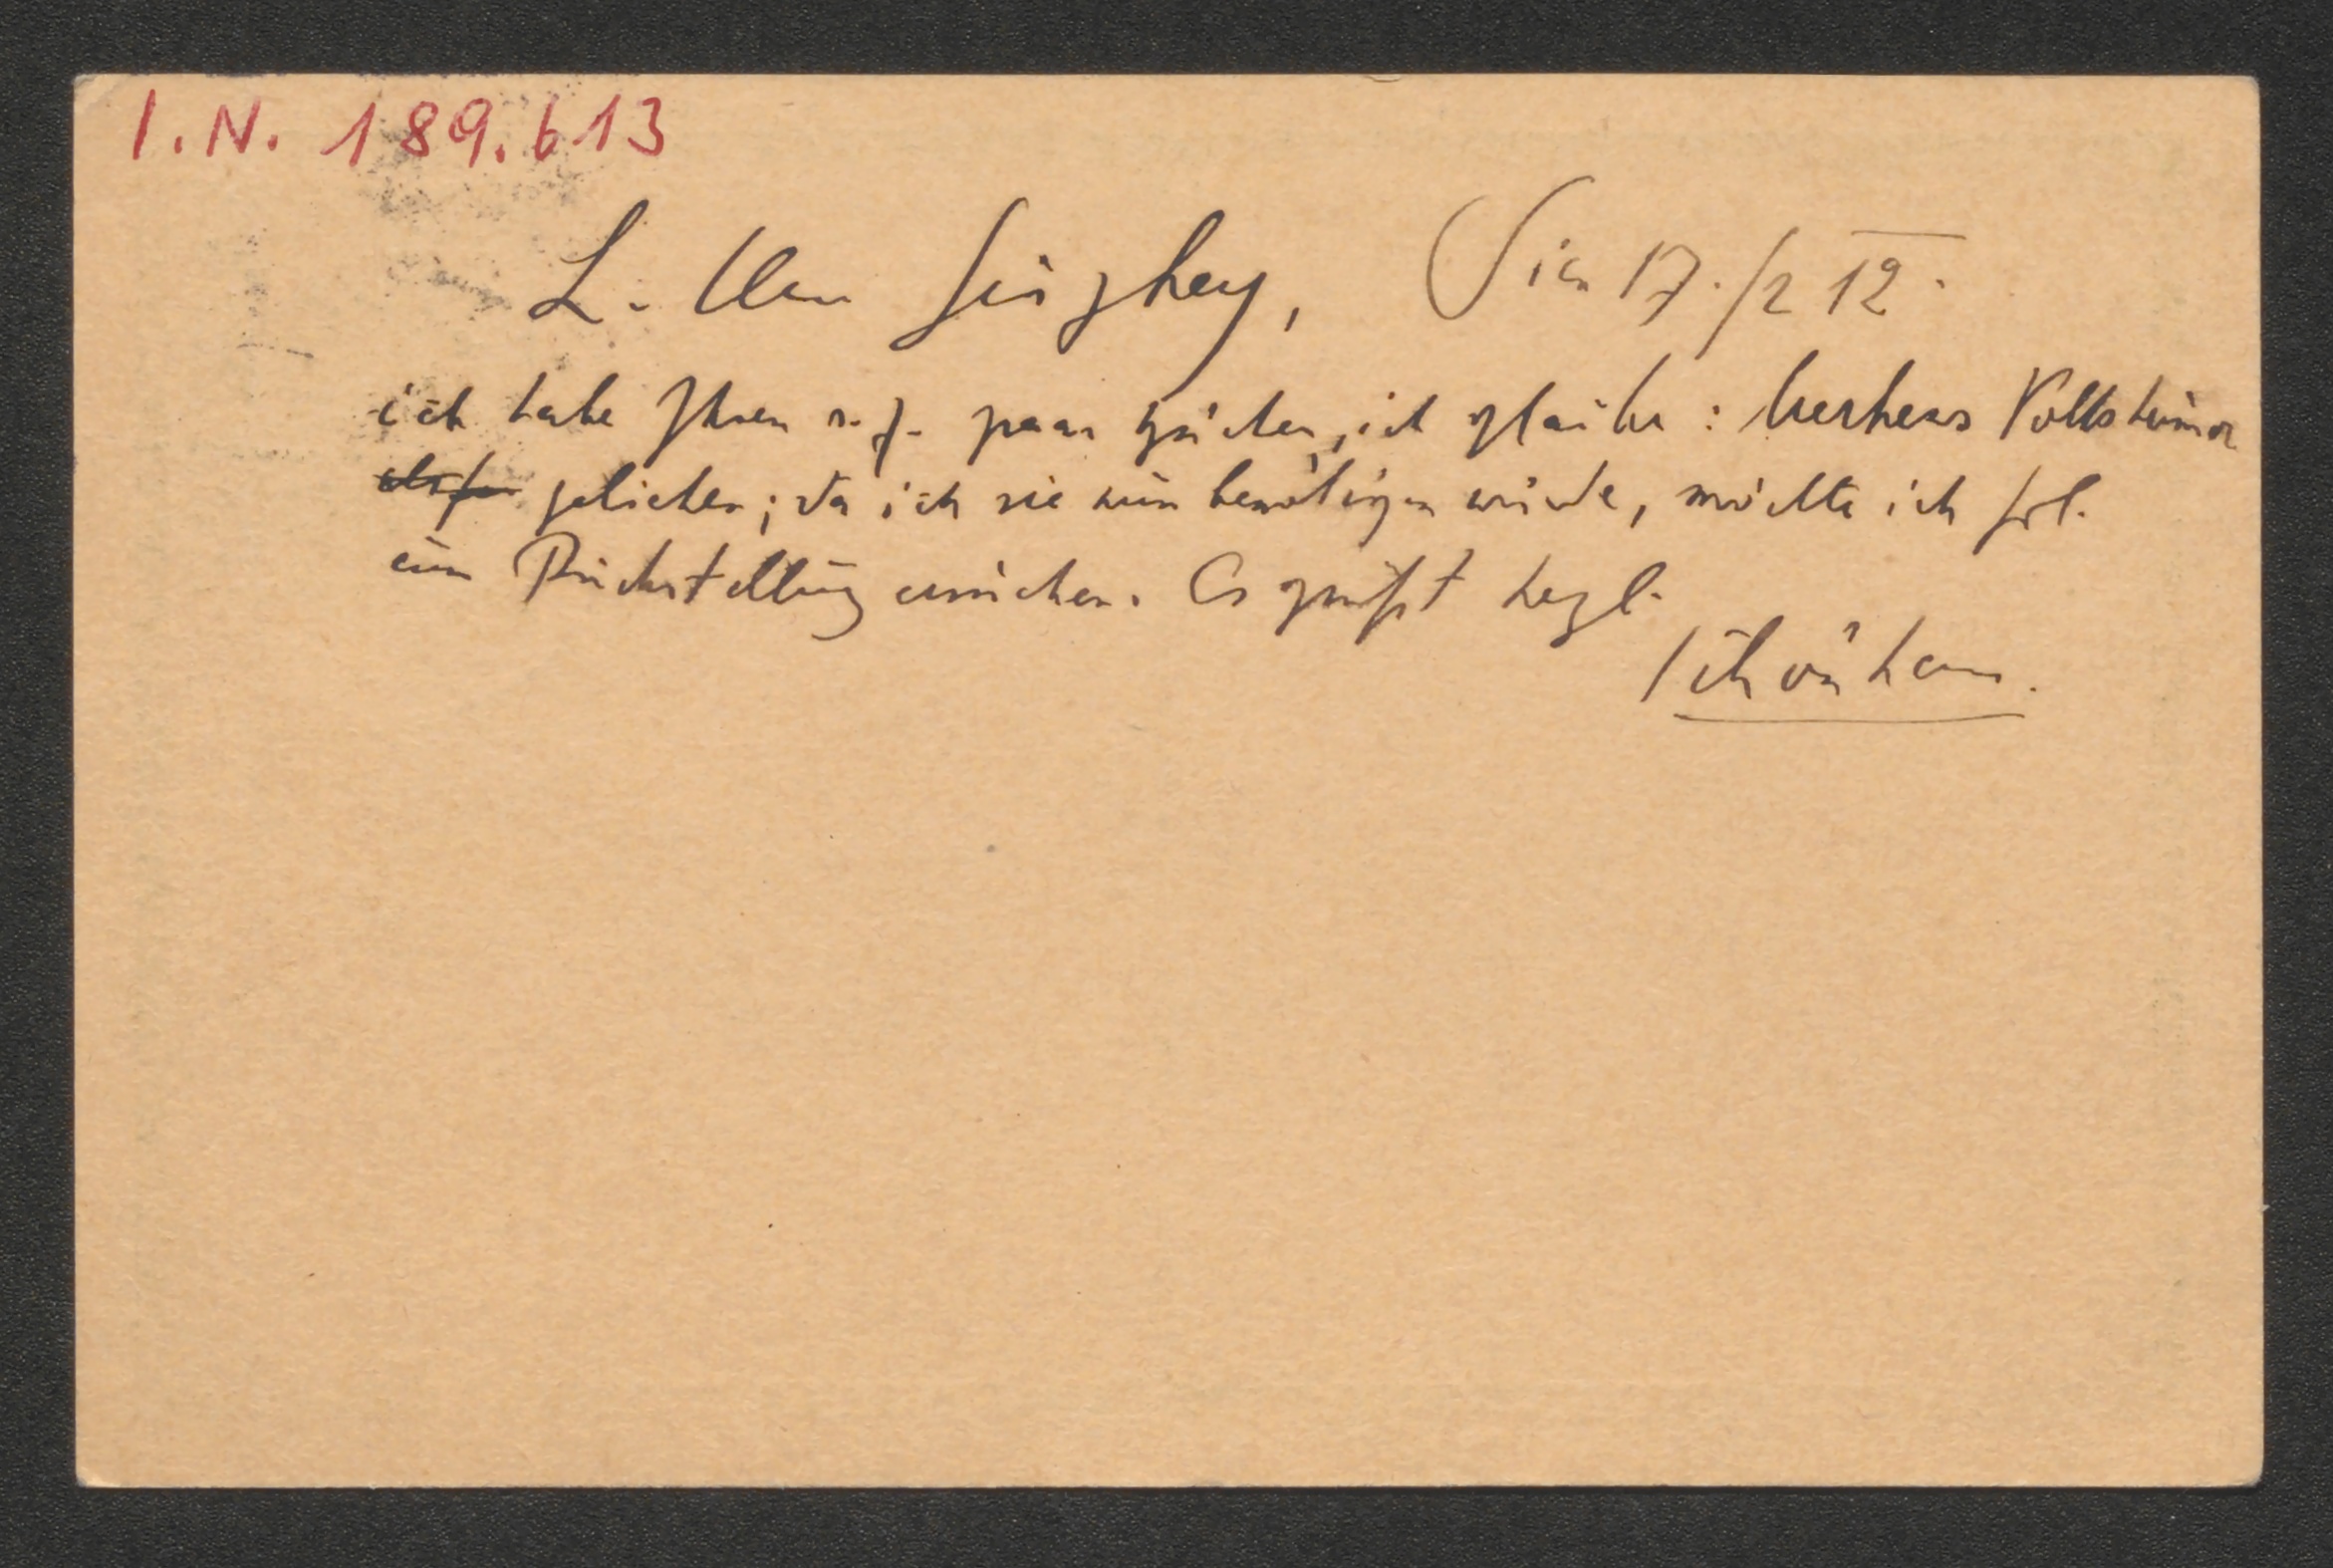 I.N. 189.613
L. Herr Jungher, Wien 17./2 12.
ich habe Ihnen s. Z. paar Bücher, ich glaube: Volkshumor
geliehen; da ich sie nun benötigen würde, möchte ich frl.
um Rückstellung ersuchen. Es grüßt herzl.
Schönherr.